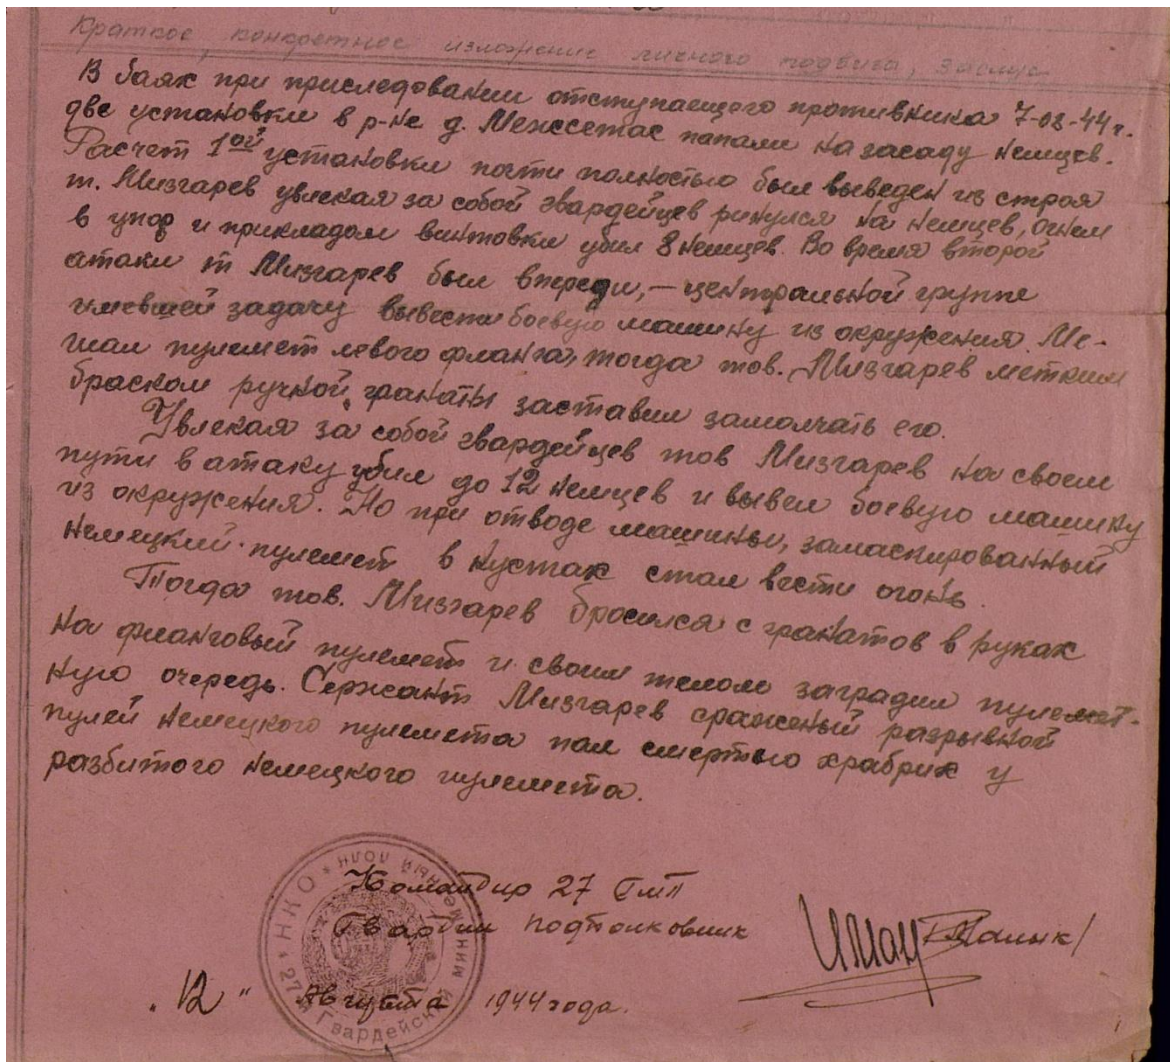 Краткое, конкретное изложение личного подвига, заслуг
В баях при приследовании отступающего противника 7-08-44г.
две установки в р-не д. Межсетас папали на засаду немцев.
Расчет 1ой установки почти полностью был выведен из строя
т. Мизгарев увлекая за собой гвардейцев ринулся на немцев, огнем
в упор и прикладом винтовки убил 8 немцев. Во время второй
атаки т Мизгарев был впереди, — центральной группе
имевшей задачу вывести боевую машину из окружения. Ме-
шал пулемет левого фланга, тогда тов. Мизгарев метким
браском ручной гранаты заставил замолчать его.
Увлекая за собой гвардейцев тов Мизгарев на своем
пути в атаку убил до 12 немцев и вывел боевую машину
из окружения. Но при отводе машины, замаскированный
немецкий пулемет в кустах стал вести огонь
Тогда тов. Мизгарев бросился с гранатов в руках
на фланговый пулемет и своим телом заградил пулемет-
ную очередь. Сержант Мизгарев сраженый разрывной
пулей немецкого пулемета пал смертью храбрих у
разбитого немецкого пулемета.
Командир 27 ГМП
Гвардии подполковник
"12" Августа 1944 года.
27й Гвардейский минометный полк * НКО *